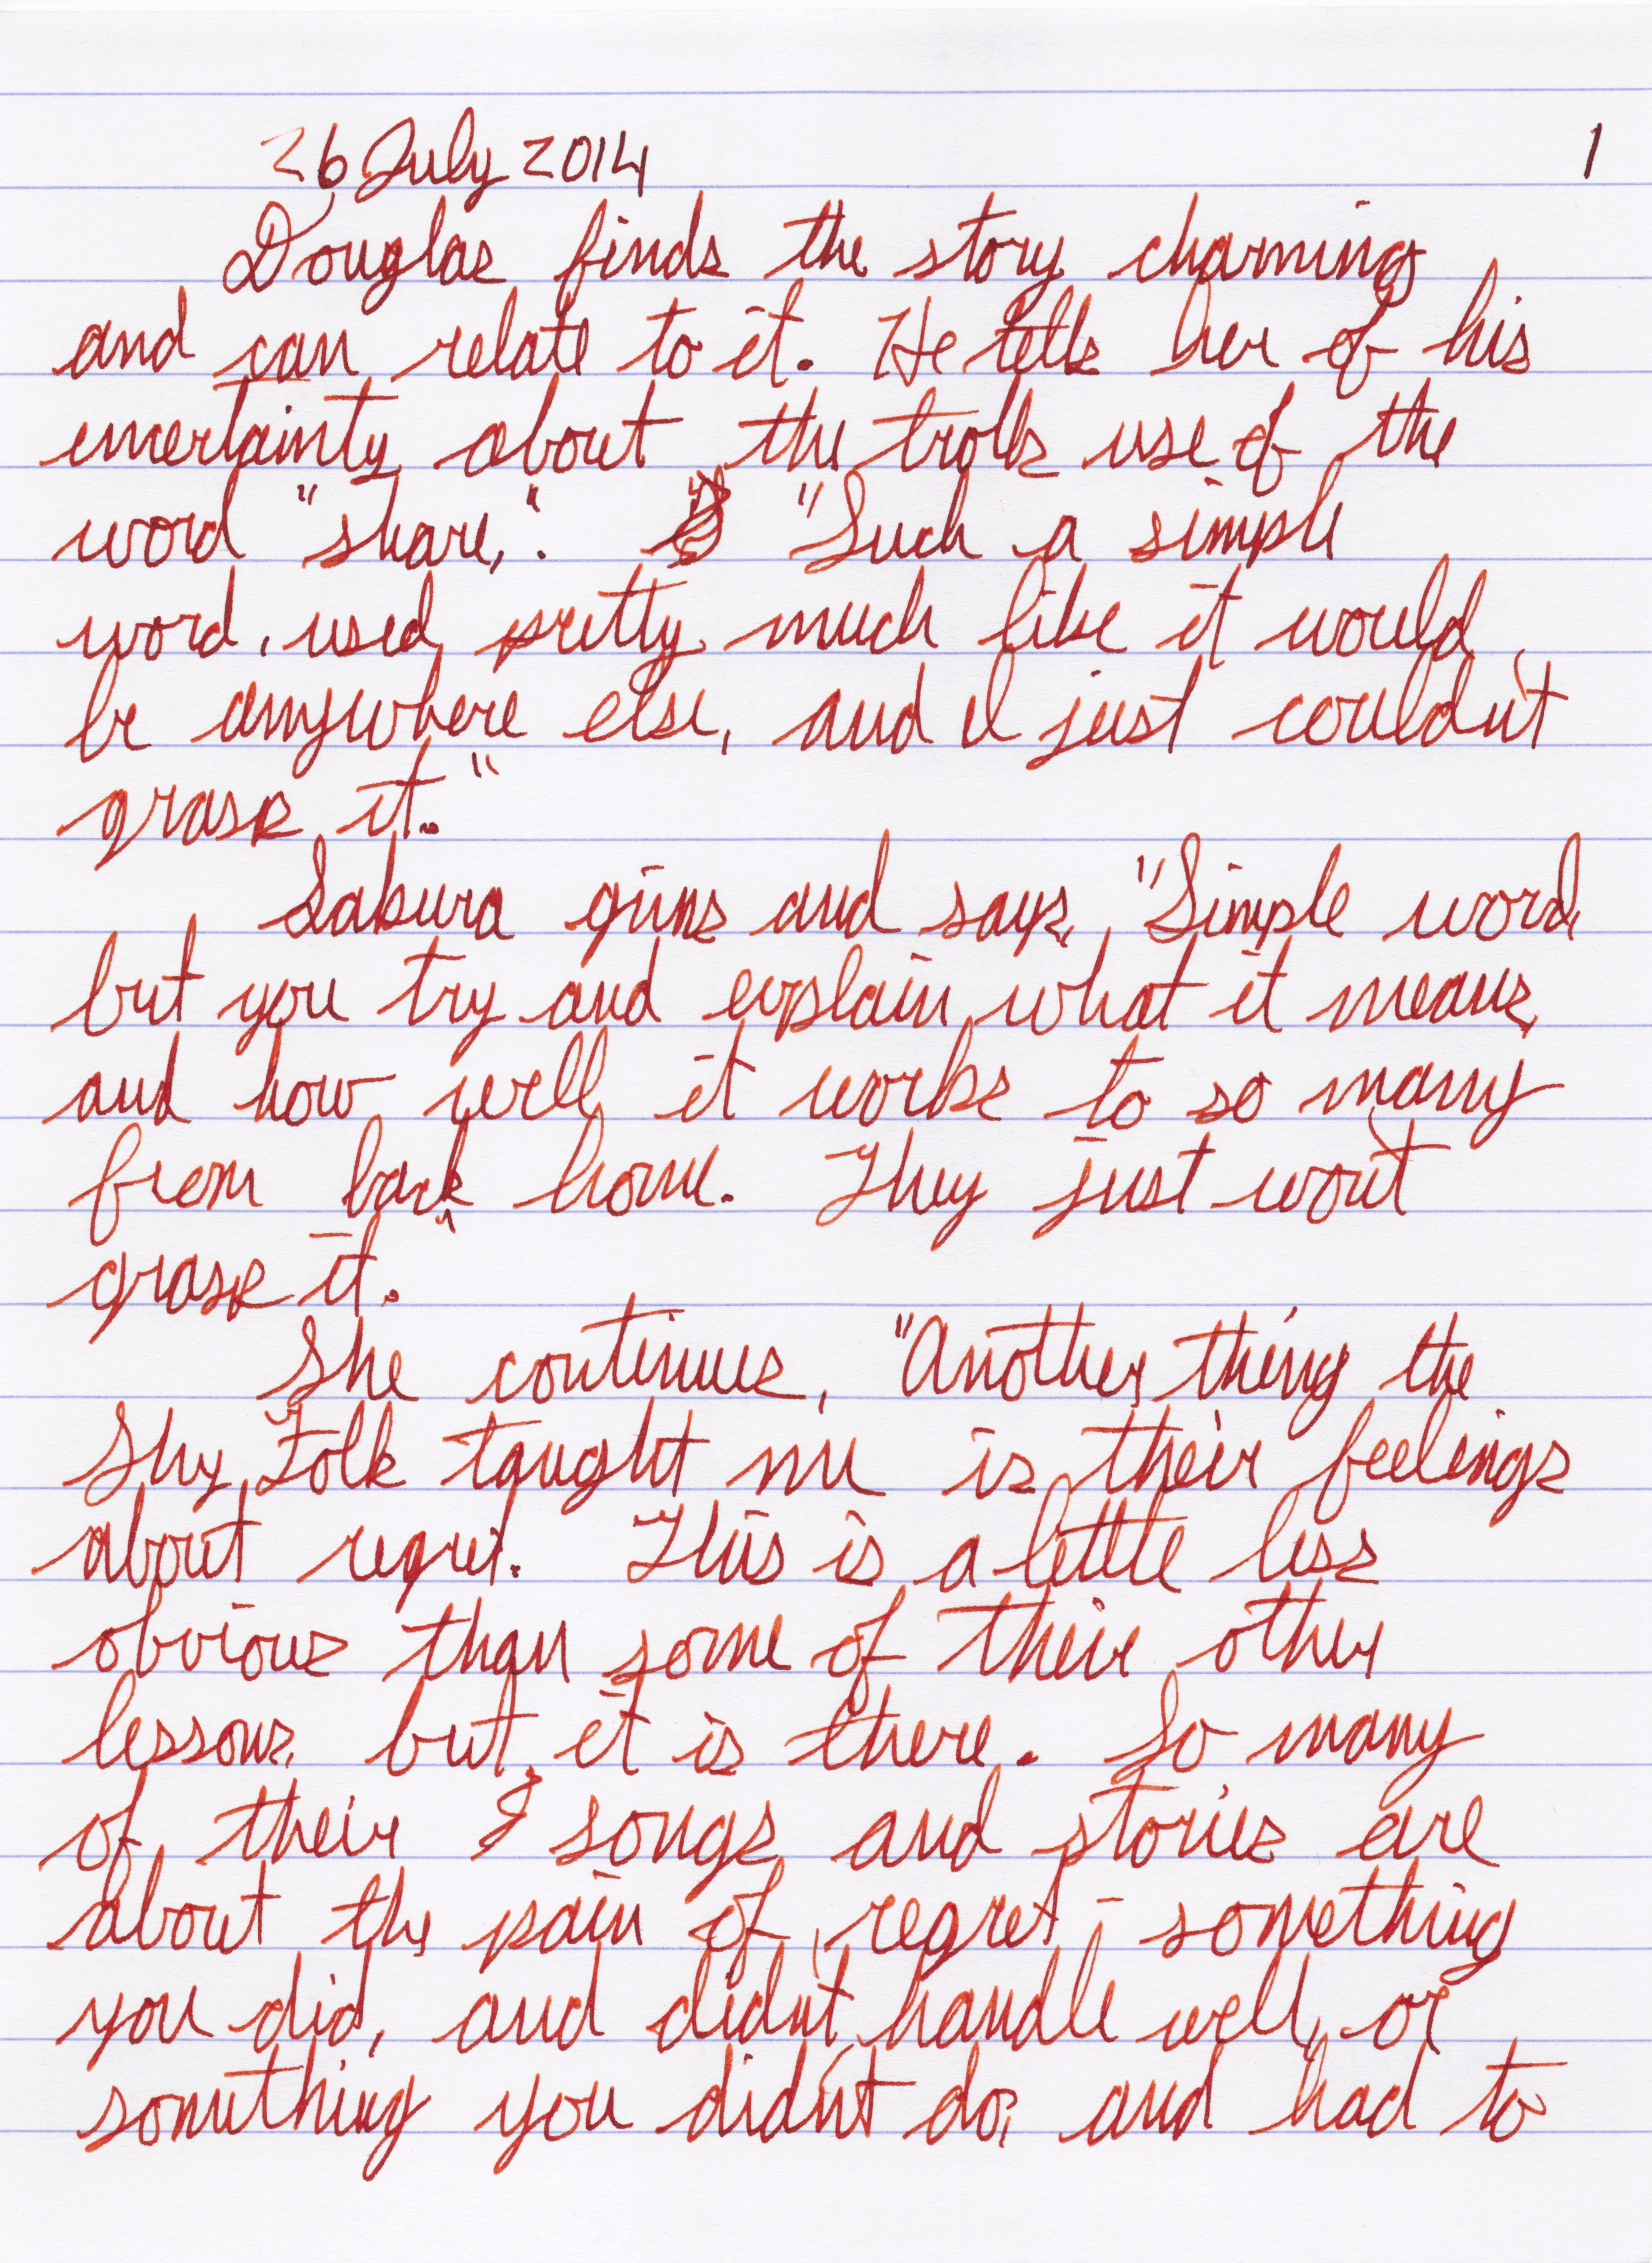 26 July 2014 1
Douglas finds the story charming
and can relate to it. He tells her of his
uncertainty about the trolls use of the
word "share,". "Such a simple
word, used pretty much like it would
be anywhere else, and I just couldn't
grasp it."
Sakura grins and says, "Simple word,
but you try and explain what it means,
and how well it works to so many
from back home. They just won't
grasp it.
She continues, "Another thing the
Shy Folk taught me is their feelings
about regret. This is a little less
obvious than some of their other
lessons, but it is there. So many
of their songs and stories are
about the pain of regret - something
you did, and didn't handle well, or
something you didn't do, and had to